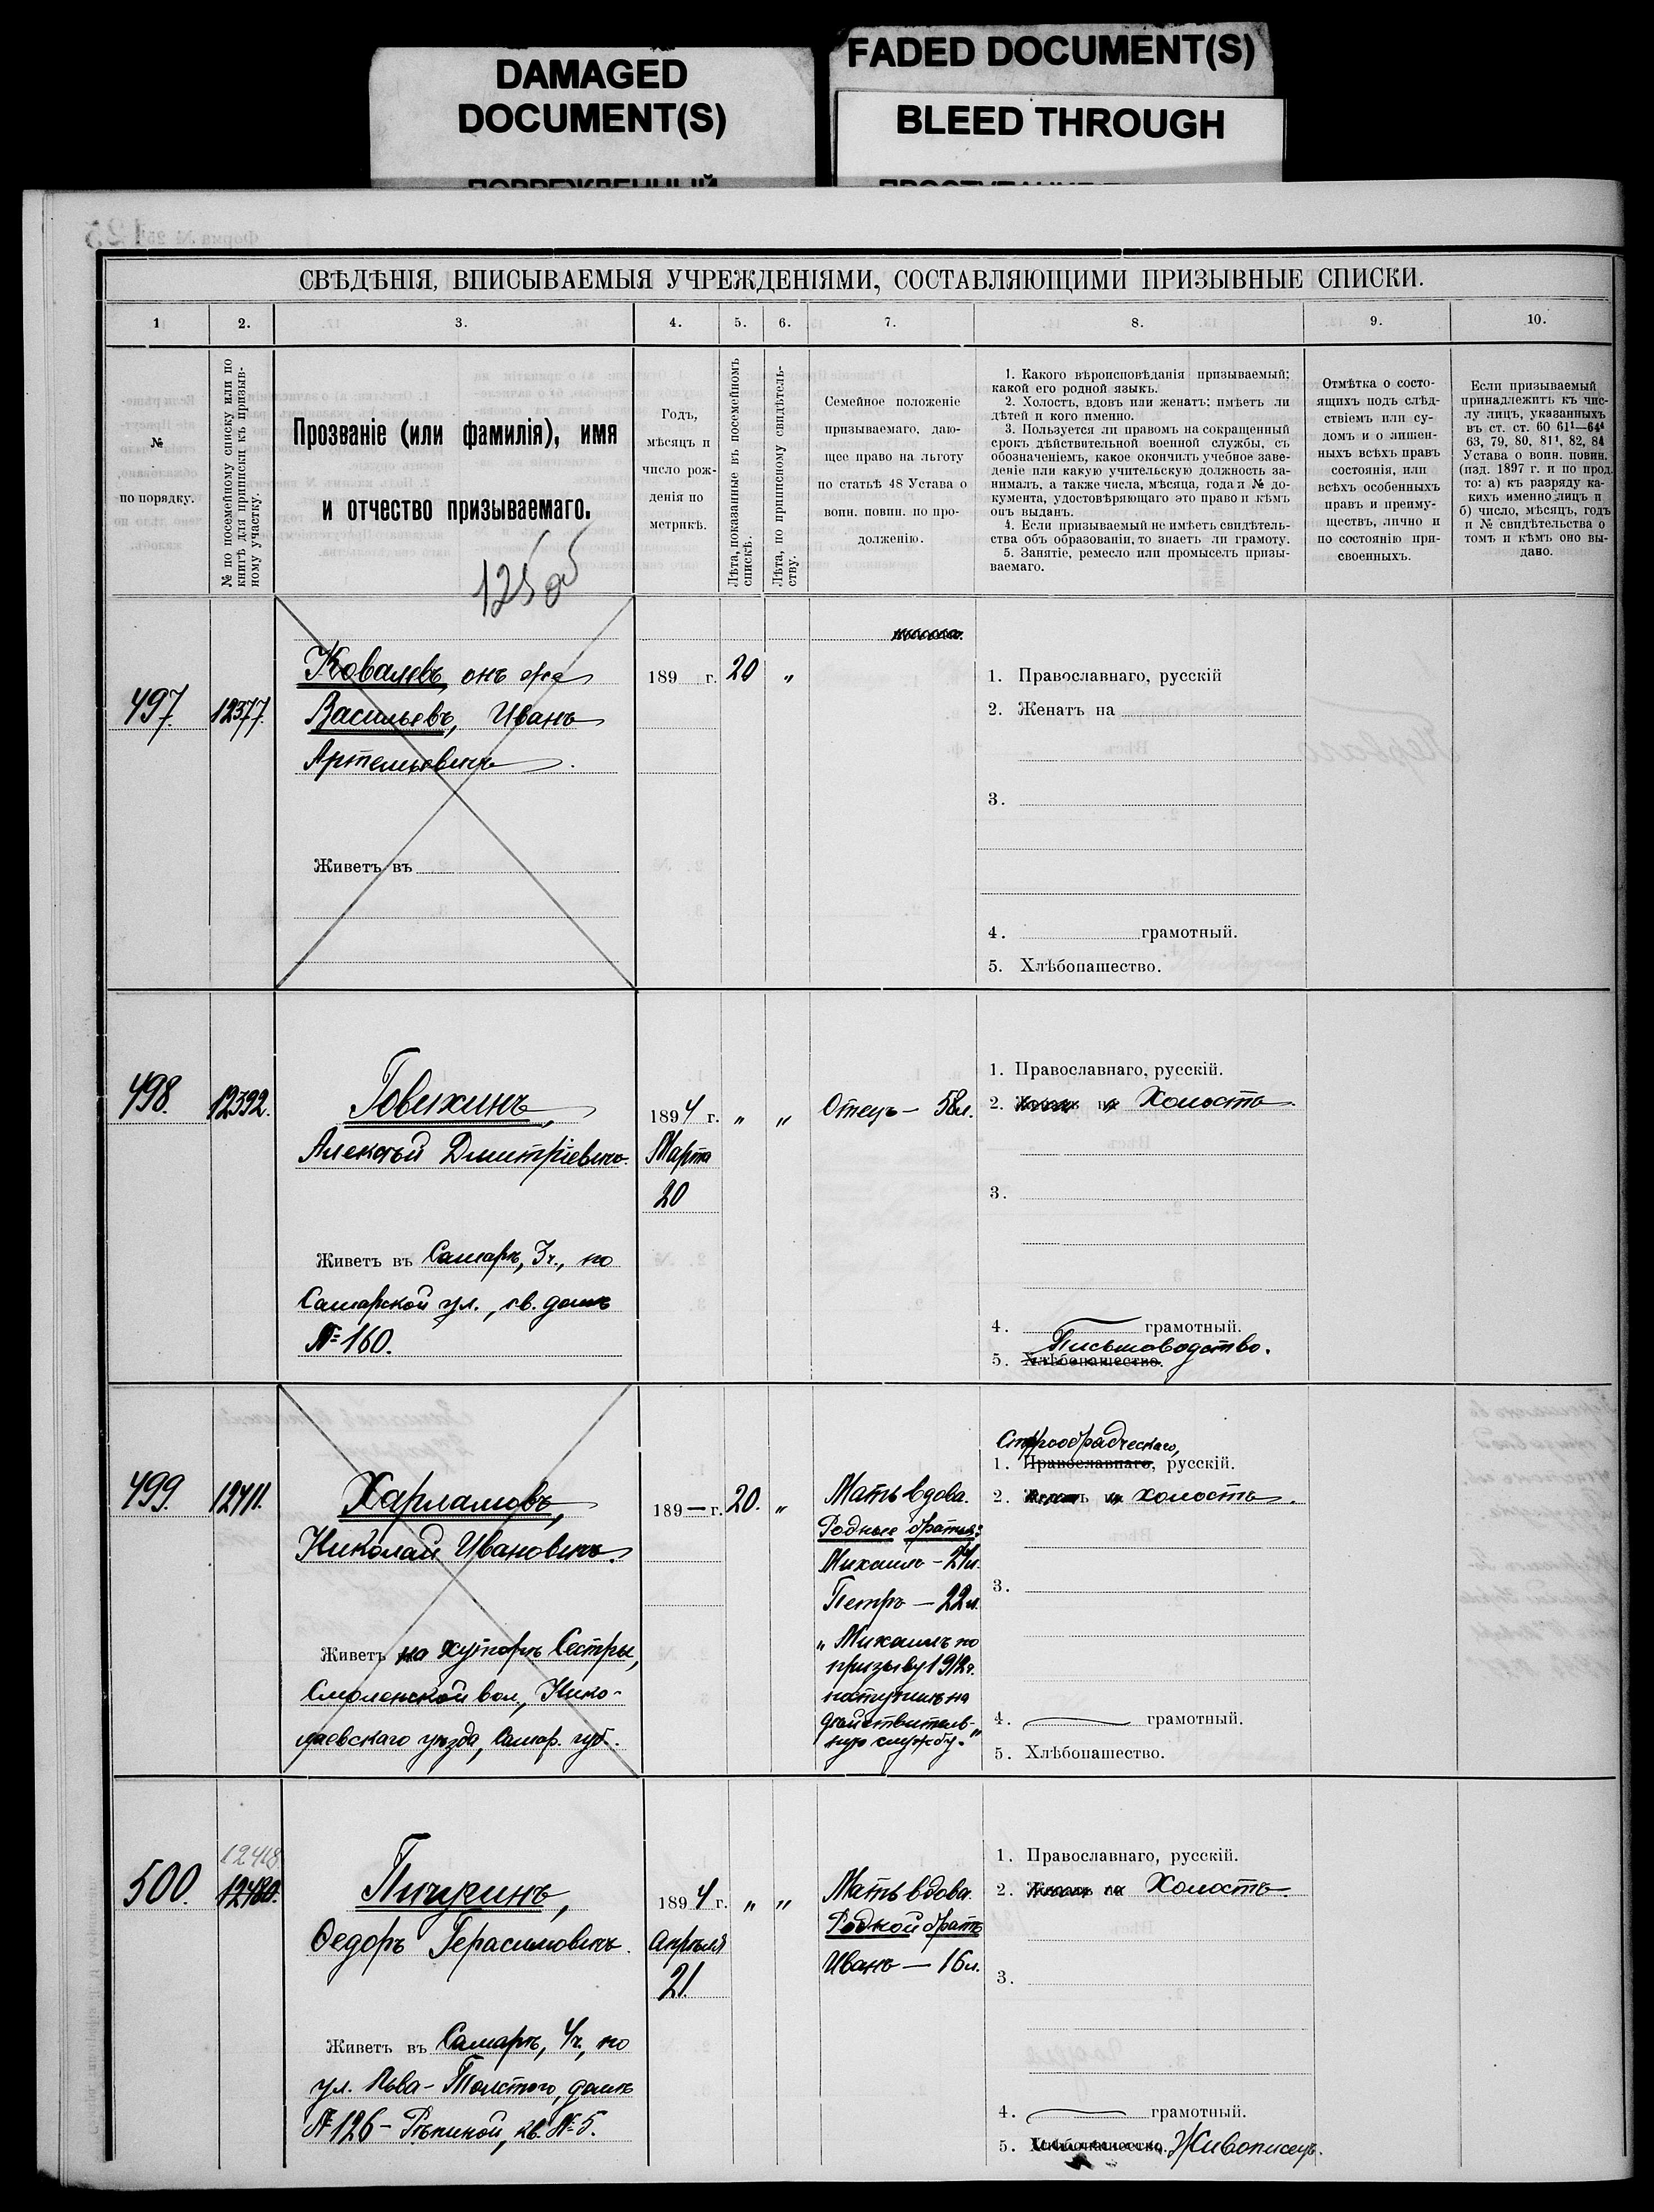 DAMAGED
DOCUMENT(S)
FADED DOCUMENT(S)
BLEED THROUGH
СВѢДѢНІЯ, ВПИСЫВАЕМЫЯ УЧРЕЖДЕНІЯМИ, СОСТАВЛЯЮЩИМИ ПРИЗЫВНЫЕ СПИСКИ.
1
2.
3.
4.
5.
6.
7.
8.
9.
10.
№
по порядку.
№ по посемейному списку или по
книгѣ для приписки къ призыв-
ному участку.
Прозваніе (или фамилія), имя
и отчество призываемаго.
125 об
Годъ,
мѣсяцъ и
число рож-
денія по
метрикѣ.
Лѣта, показанные въ посемейномъ
спискѣ.
Лѣта, по приписному свидѣтель-
ству.
Семейное положеніе
призываемаго, даю-
щее право на льготу
по статьѣ 48 Устава о
воин. повин. по про-
долженію.
1. Какого вѣроисповѣданія призываемый;
какой его родной языкъ.
2. Холостъ, вдовъ или женатъ; имѣетъ ли
дѣтей и кого именно.
3. Пользуется ли правомъ на сокращенный
срокъ дѣйствительной военной службы, съ
обозначеніемъ, какое окончилъ учебное заве-
деніе или какую учительскую должность за-
нималъ, а также числа, мѣсяца, года и № до-
кумента, удостовѣряющаго это право и кѣмъ
онъ выданъ.
4. Если призываемый не имѣетъ свидѣтель-
ства объ образованіи, то знаетъ ли грамоту.
5. Занятіе, ремесло или промыселъ призы-
ваемаго.
Отмѣтка о состо-
ящихъ подъ слѣд-
ствіемъ или су-
домъ и о лишен-
ныхъ всѣхъ правъ
состоянія, или
всѣхъ особенныхъ
правъ и преиму-
ществъ, лично и
по состоянію при-
своенныхъ.
Если призываемый
принадлежитъ къ чис-
лу лицъ, указанныхъ
въ ст. ст. 60 61¹—64⁴
63, 79, 80, 81¹, 82, 84
Устава о воин. повин.
(изд. 1897 г. и по прод.
то: а) къ разряду ка-
кихъ именно лицъ и
б) число, мѣсяцъ, годъ
и № свидѣтельства о
томъ и кѣмъ оно вы-
дано.
497.
12377.
Ковалевъ, онъ же
Васильевъ, Иванъ
Артемьевичъ.
Живетъ въ
189 г.
20
„
1. Православнаго, русскій
2. Женатъ на
3.
4. грамотный.
5. Хлѣбопашество.
498.
12392.
Говихинъ,
Алексѣй Дмитріевичъ.
Живетъ въ Самарѣ, 3 ч., по
Самарской ул., св. домъ
№ 160.
1894 г.
Марта
20
„
„
Отецъ — 58 л.
1. Православнаго, русскій.
2. на Холостъ.
3.
4. грамотный.
Письмоводство.
5. Хлѣбопашество.
499.
12411.
Харламовъ,
Николай Ивановичъ.
Живетъ на хуторѣ Сестры,
Смоленской вол., Нико-
лаевскаго уѣзда, Самар. губ.
189— г.
20.
„
Мать вдова.
Родные братья:
Михаилъ — 24 л.
Петръ — 22 л.
„Михаилъ по
призыву 1912 г.
поступилъ на
дѣйствитель-
ную службу."
Старообрядческаго,
1. Православнаго, русскій.
2. холостъ.
3.
4. грамотный.
5. Хлѣбопашество.
500.
12418.
12480.
Пичугинъ,
Ѳедоръ Герасимовичъ.
Живетъ въ Самарѣ, 4 ч., по
ул. Льва-Толстого, домъ
№ 126 — Рѣпиной, кв. № 5.
1894 г.
Апрѣля
21.
„
„
Мать вдова.
Родной братъ
Иванъ — 16 л.
1. Православнаго, русскій.
2. на Холостъ.
3.
4. грамотный.
5. Хлѣбопашество. Живописецъ.